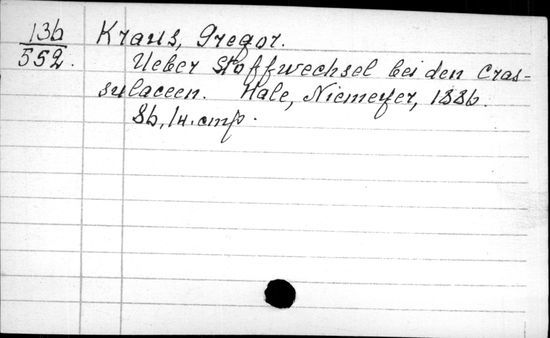 136 Kraus, Gregor.
552. Ueber Stoffwechsel bei den Cras-
sulaceen. Hale, Niemeyer, 1886.
8b, 14. cmp.